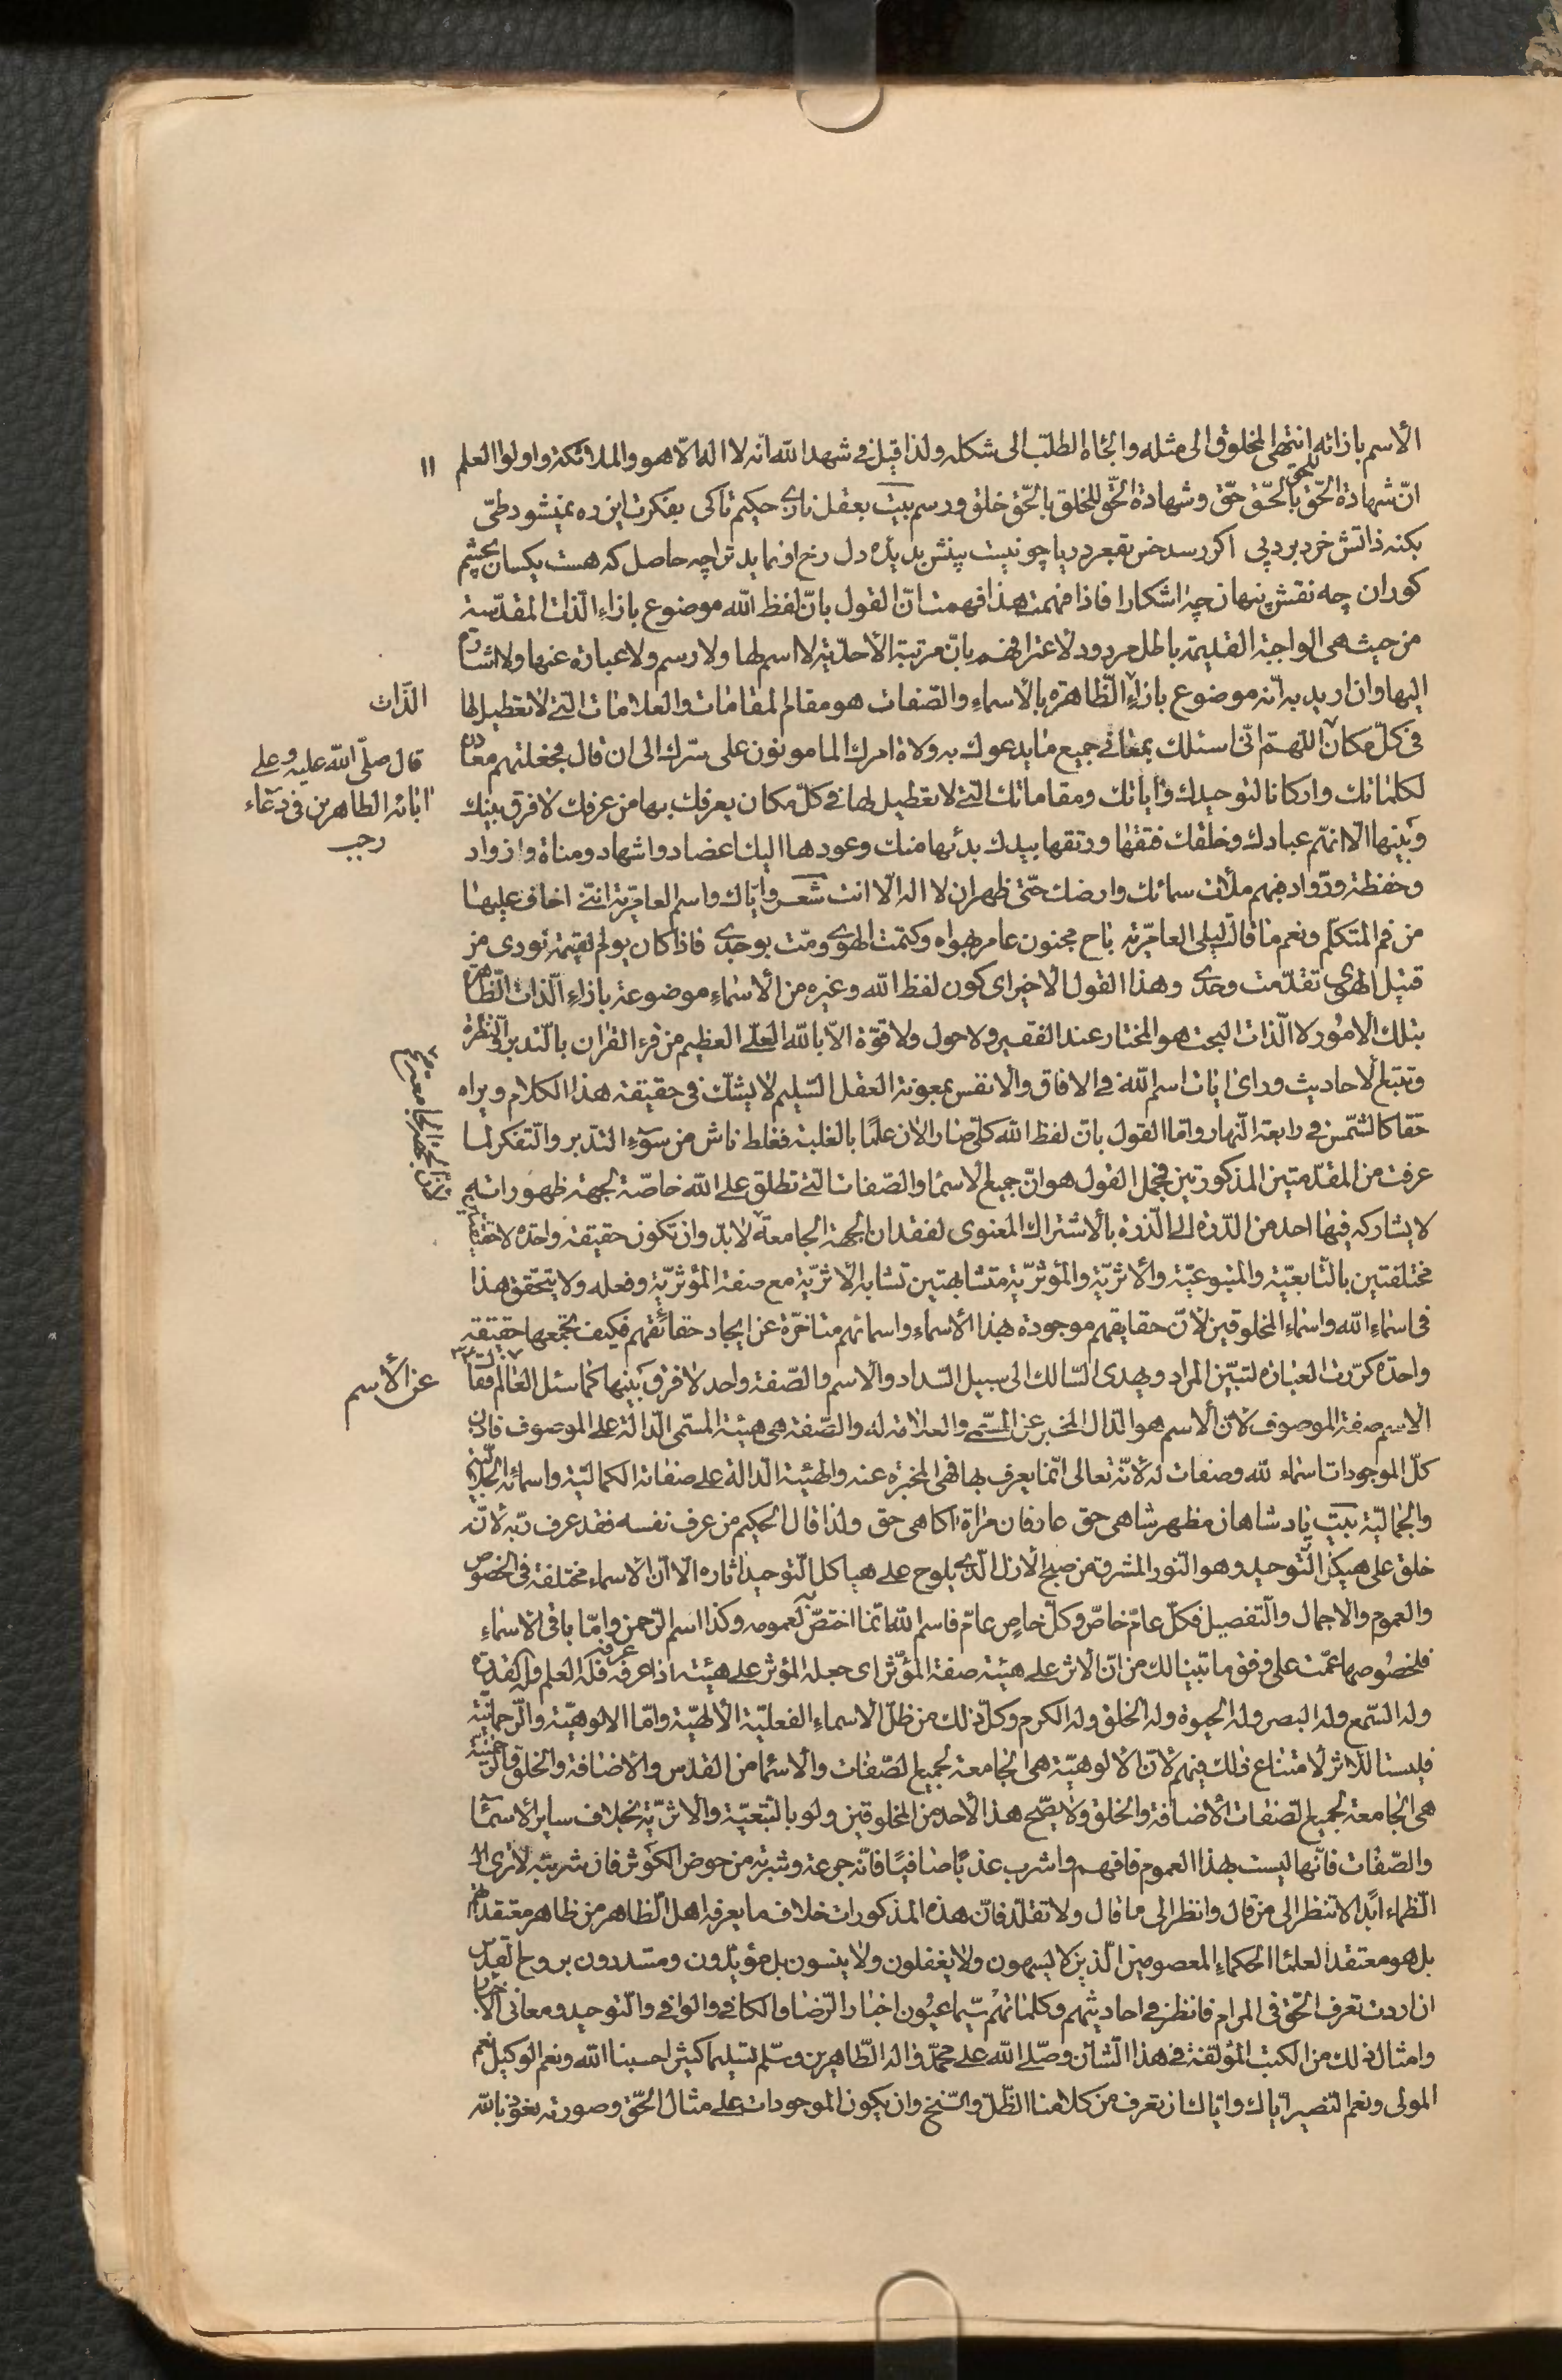 الأسم بازائه انتهى المخلوق الى مثله والجاه الطلب الى شكله ولذا قيل في شهد الله انّه لا اله الّا هو والملائكة واولوا العلم
١١
انّ شهادة الحّق للحق بالحّق حّق وشهادة الحّق للخلق بالحّق خلق ورسم بيت بعقل نازى حكيم تاكى بفكرت اين ره نميشود طى
بكنه ذاتش خرد برد پى اكر رسد خس بقعر دريا چو نيست بينش بديدۀ دل رخ ار نمايد ترا چه حاصل كه هست يكسان بچشم
كوران چه نقش پنهان چه اشكارا فاذا فهمت هذا فهمت انّ القول بانّ لفظ الله موضوع بازاء الذات المقدّسة
من حيث هى الواجبة القديمة باطل مردود لاعترافهم بانّ مرتبة الأحدّية لا اسم لها ولا رسم ولا عبارة عنها ولا اشارة
اليها وان اريد به انّه موضوع بازاء الظّاهرة بالأسماء والصّفات هو مقام المقامات والعلامات التي لا تعطيل لها
الذّات
فى كلّ مكان اللّهمّ انّى اسئلك بمعاني جميع ما يدعوك به ولاة امرك المامونون على سرّك الى ان قال فجعلتهم معادن
قال صلّى الله عليه وعلى
ابائه الطاهرين فى دعاء
رجب
لكلماتك واركانا لتوحيدك واياتك ومقاماتك التى لا تعطيل لها في كلّ مكان يعرفك بها من عرفك لا فرق بينك
وبينها الّا انهّم عبادك وخلقك فتقها ورتقها بيدك بدئها منك وعودها اليك اعضاد واشهاد ومناة وازواد
وحفظة وروّاد فبهم ملأت سمائك وارضك حتّى ظهر ان لا اله الّا انت شعر وايّاك واسم العامّرية انّنى اخاف عليها
من فم المتكلّم ونعم ما قالت ليلى العامّرية باح مجنون عامر بهواه وكتمت الهوى ومّت بوجدى فاذا كان يوم القيمة نودى من
قتيل الهوى تقدّمت وحدى وهذا القول الأخير اى كون لفظ الله وغيره من الأسماء موضوعة بازاء الذات الظّاهرة
بتلك الأمور لا الذّات البحت هو المختار عند الفقير ولا حول ولا قوّة الّا بالله العلّى العظيم من قرء القران بالتّدبر والنّظرة
وتتبع الأحاديث وراى ايات اسم الله في الافاق والأنفس بمعونة العقل السّليم لا يشكّ فى حقيقة هذا الكلام ويراه
حقا كالشّمس في رابعة النّهار وامّا القول بانّ لفظ الله كلّى صار الأن علمًا بالغلبة فغلط ناش من سوء التدّبر والتّفكر لما
عرفت من المقدّمتين المذكورتين فمجمل القول هو انّ جميع الأسماء والصّفات التى تطلق على الله خاصّة لجهة ظهوراته
لا يشاركه فيها احد من الدّرة الى الذّرة بالأشتراك المعنوى لفقدان الجهة الجامعة لا بدّ وان تكون حقيقة واحدة لا حقيقتين
مختلفتين بالتّابعيّة والمتبوعيّة والأثريّة والمؤثرّية متشابهتين تشابه الأثريّة مع صفة المؤثريّة وفعله ولا يتحّقق هذا
فى اسماء الله واسماء المخلوقين لأنّ حقايقهم موجودة بهذا الأسماء واسمائهم متاخرّة عن ايجاد حقائقهم فكيف تجمعها حقيقة
واحدة كرّرت العبارة لتبيّن المراد ويهدى السّالك الى سبيل السّداد والأسم والصّفة واحد لا فرق بينها كما سئل العالم فقال
عن الأسم
الأسم صفة الموصوف لأنّ الأسم هو الدّال المخبر عن المسّمى والعلامة له والصّفة هى هيئة المسمّى الدّالة على الموصوف فاذن
كلّ الموجودات اسماء لله وصفات له لأنّه تعالى انّما يعرف بها فهى المخبرة عنه والهيئية الدّالة على صفاته الكماليّة واسمائه الجلاليّة
والجماليّة بيت پادشاهان مظهر شاهى حق عارفان مرآة اكاهى حق ولذا قال الحكيم من عرف نفسه فقد عرف ربّه لأنّه
خلق على هيكل التّوحيد وهو النّور المشرق من صبح الأزل الّذى يلوح على هياكل التّوحيد اثاره الّا انّ الأسماء مختلفة فى الخصوص
والعموم والأجمال والتّفصيل فكلّ عام خاصّ وكلّ خاص عامّ فاسم الله انّما اختصّ لعمومه وكذا اسم الرّحمن وامّا باقى الأسماء
فلخصوصها عمّت على وفق ما تبيّنا لك من انّ الأثر على هيئة صفة المؤثر اى جعله المؤثر على هيئة اذا عرفه عرفه فله العلم وله القدرة
وله السّمع وله البصر وله الحيوة وله الخلق وله الكرم وكلّ ذلك من ظلّ الأسماء الفعليّة الألهيّة وامّا الالوهيّة والرّحمانيّة
فليستا للأثر لأمتناع ذلك فيهم لأنّ الألوهيّة هى الجامعة لجميع الصّفات والأسماء من القدس والأضافة والخلق والرحمنيّة
هى الجامعة لجميع الصّفات الأضافة والخلق ولا يصّح هذا لأحد من المخلوقين ولو بالتّبعيّة والأثريّة بخلاف ساير الأسمآء
والصّفات فانّها ليست بهذا العموم فافهم واشرب عذبًا صافيًا فانّه جرعة وشربة من حوض الكوثر فان شربته لا ترى
الظماء ابدًا لا تنظر الى من قال وانظر الى ما قال ولا تقلّد فانّ هذه المذكورات خلاف ما يعرفه اهل الظّاهر من ظاهر معتقداتهم
بل هو معتقد العلماء الحكماء المعصومين الّذين لا يسهون ولا يغفلون ولا ينسون بل مؤيّدون ومسّددون بروح القدس
ان اردت تعرف الحّق فى المرام فانظر في احاديثهم وكلماتهم سيّما عيون اخبار الرّضا والكافي والوافي والتّوحيد ومعانى الأخبار
وامثال ذلك من الكتب المؤلفة في هذا الشّأن وصلّى الله على محمّد واله الطّاهرين وسلّم تسليما كثيرا حسبنا الله ونعم الوكيل نعم
المولى ونعم النّصير ايّاك وايّاك ان تعرف من كلامنا الظّلّ والسّنخ وان يكون الموجودات على مثال الحّق وصورته نعوذ بالله